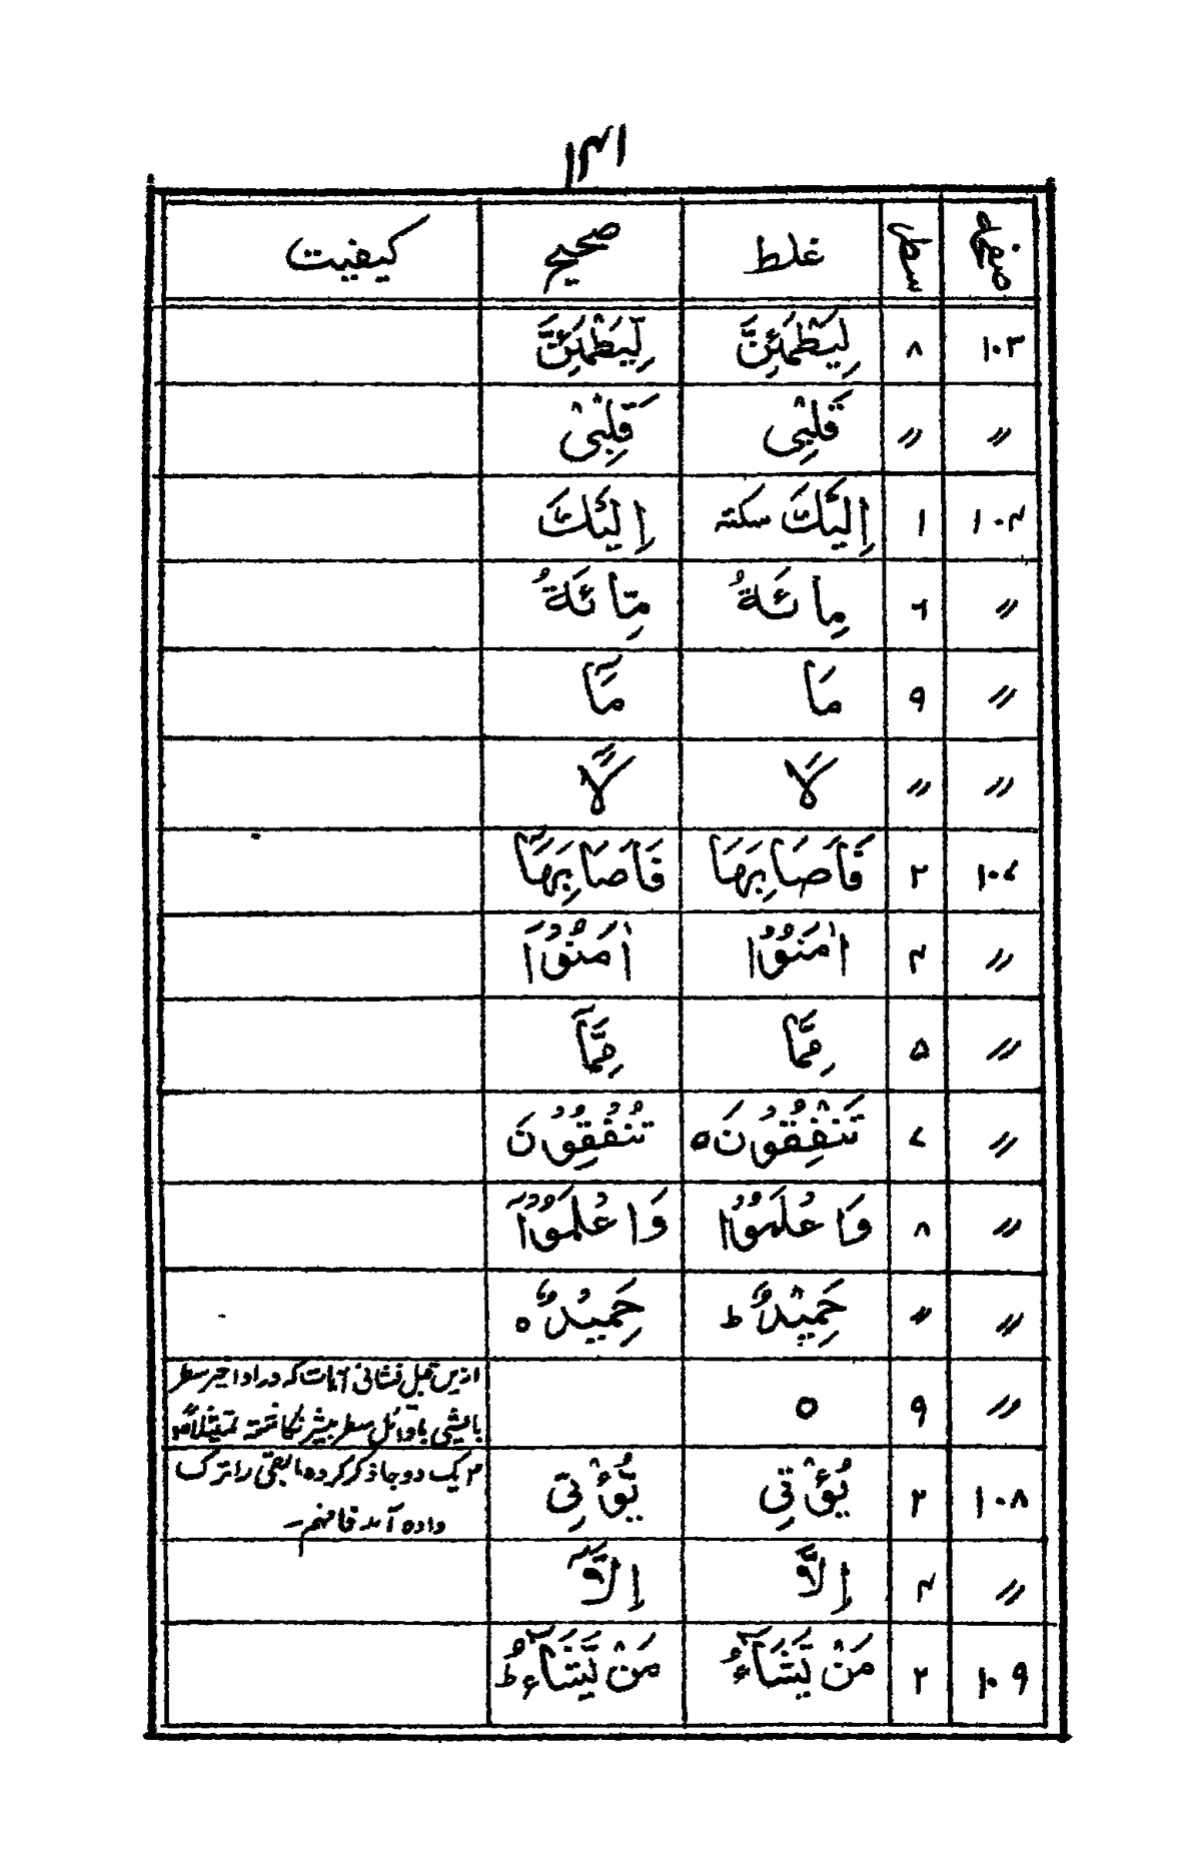 ۱۴۱
صفحہ سطر غلط صحیح کیفیت
۱۰۳ ۸ لِيَطْمَئِنَّ لِّيَطْمَئِنَّ
〃 〃 قَلْبِی قَلْبِیْ
۱۰۴ ۱ اِلَيْكَ سکتہ اِلَيْكَ
〃 ۶ مِائَةُ مِّائَةُ
〃 ۹ مَا مَآ
〃 〃 لَا لًا
۱۰۷ ۲ فَاَصَابَهَا فَاَصَابَهَآ
〃 ۴ اٰمَنُوْا اٰمَنُوْآ
〃 ۵ مِمَّا مِمَّآ
〃 ۷ تَنْفِقُوْنَ ه تُنْفِقُوْنَ
〃 ۸ وَاعْلَمُوْا وَاعْلَمُوْآ
〃 〃 حَمِيْدٌ ط حَمِيْدٌ ه
〃 ۹ ه ازیں قبل نشانی آیات کہ در اواخیر سطر
بایستی باوائل سطر بیشتر نگاشتہ تمثیلاً
۱۰۸ ۲ يُؤْتِی يُّؤْتِی یک دو جا ذکر کردہ مابقی را ترک
دادہ آمد فافہم۔
〃 ۴ اِلَّا اِلَّآ
۱۰۹ ۲ مَنْ يَّشَآءُ مَنْ يَّشَآءُ ط